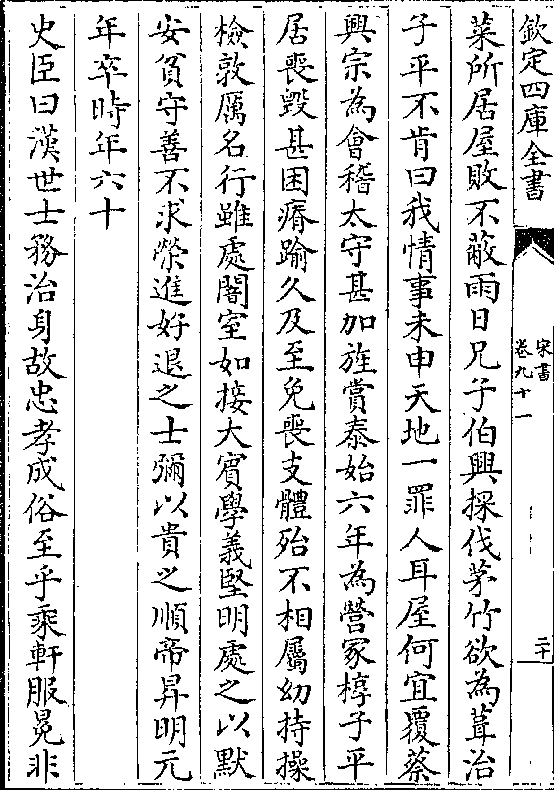 欽定四庫全書
宋書
卷九十一
二十
菜所居屋敗不蔽雨日兄子伯興採伐茅竹欲為葺治
子平不肯曰我情事未申天地一罪人耳屋何宜覆蔡
興宗為會稽太守甚加旌賞泰始六年為營冢槨子平
居喪毀甚困瘠踰久及至免喪支體殆不相屬幼持操
檢敦厲名行雖處闇室如接大賓學義堅明處之以默
安貧守善不求榮進好退之士彌以貴之順帝昇明元
年卒時年六十
史臣曰漢世士務治身故忠孝成俗至乎乘軒服冕非